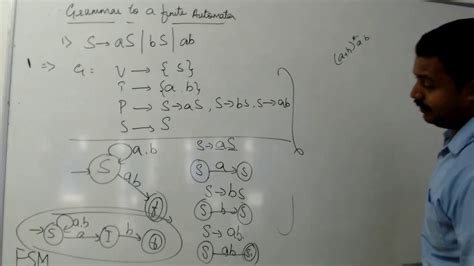 Grammar to a finite Automaton
1) S → aS | bS | ab
(a+b)* ab
1 ⇒ G: V → { S }
T → {a.b}
P → S→aS, S→bS, S→ab
S → S
a.b
S
ab
S→aS
S a S
S→bS
S b S
S→ab
S ab
a,b
S a I b
FSM